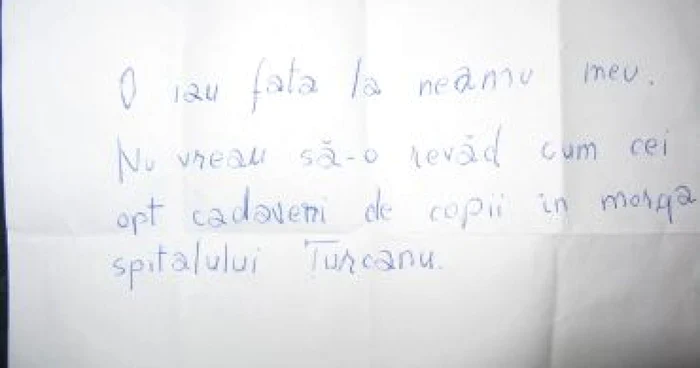 O iau fata la neamu meu.
Nu vreau să-o revăd cum cei
opt cadaveri de copii in morga
spitalului Turcanu.